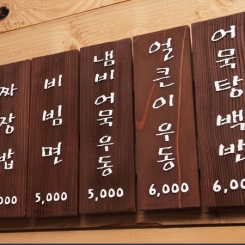 짜장밥
,000
비빔면
5,000
냄비어묵우동
5,000
얼큰이우동
6,000
어묵탕백밥
6,0